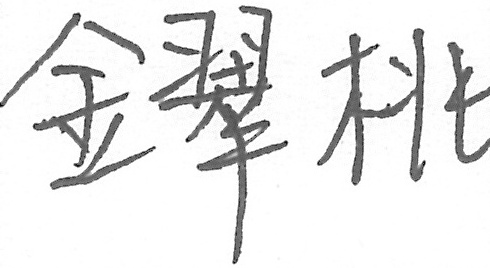 金翠桃